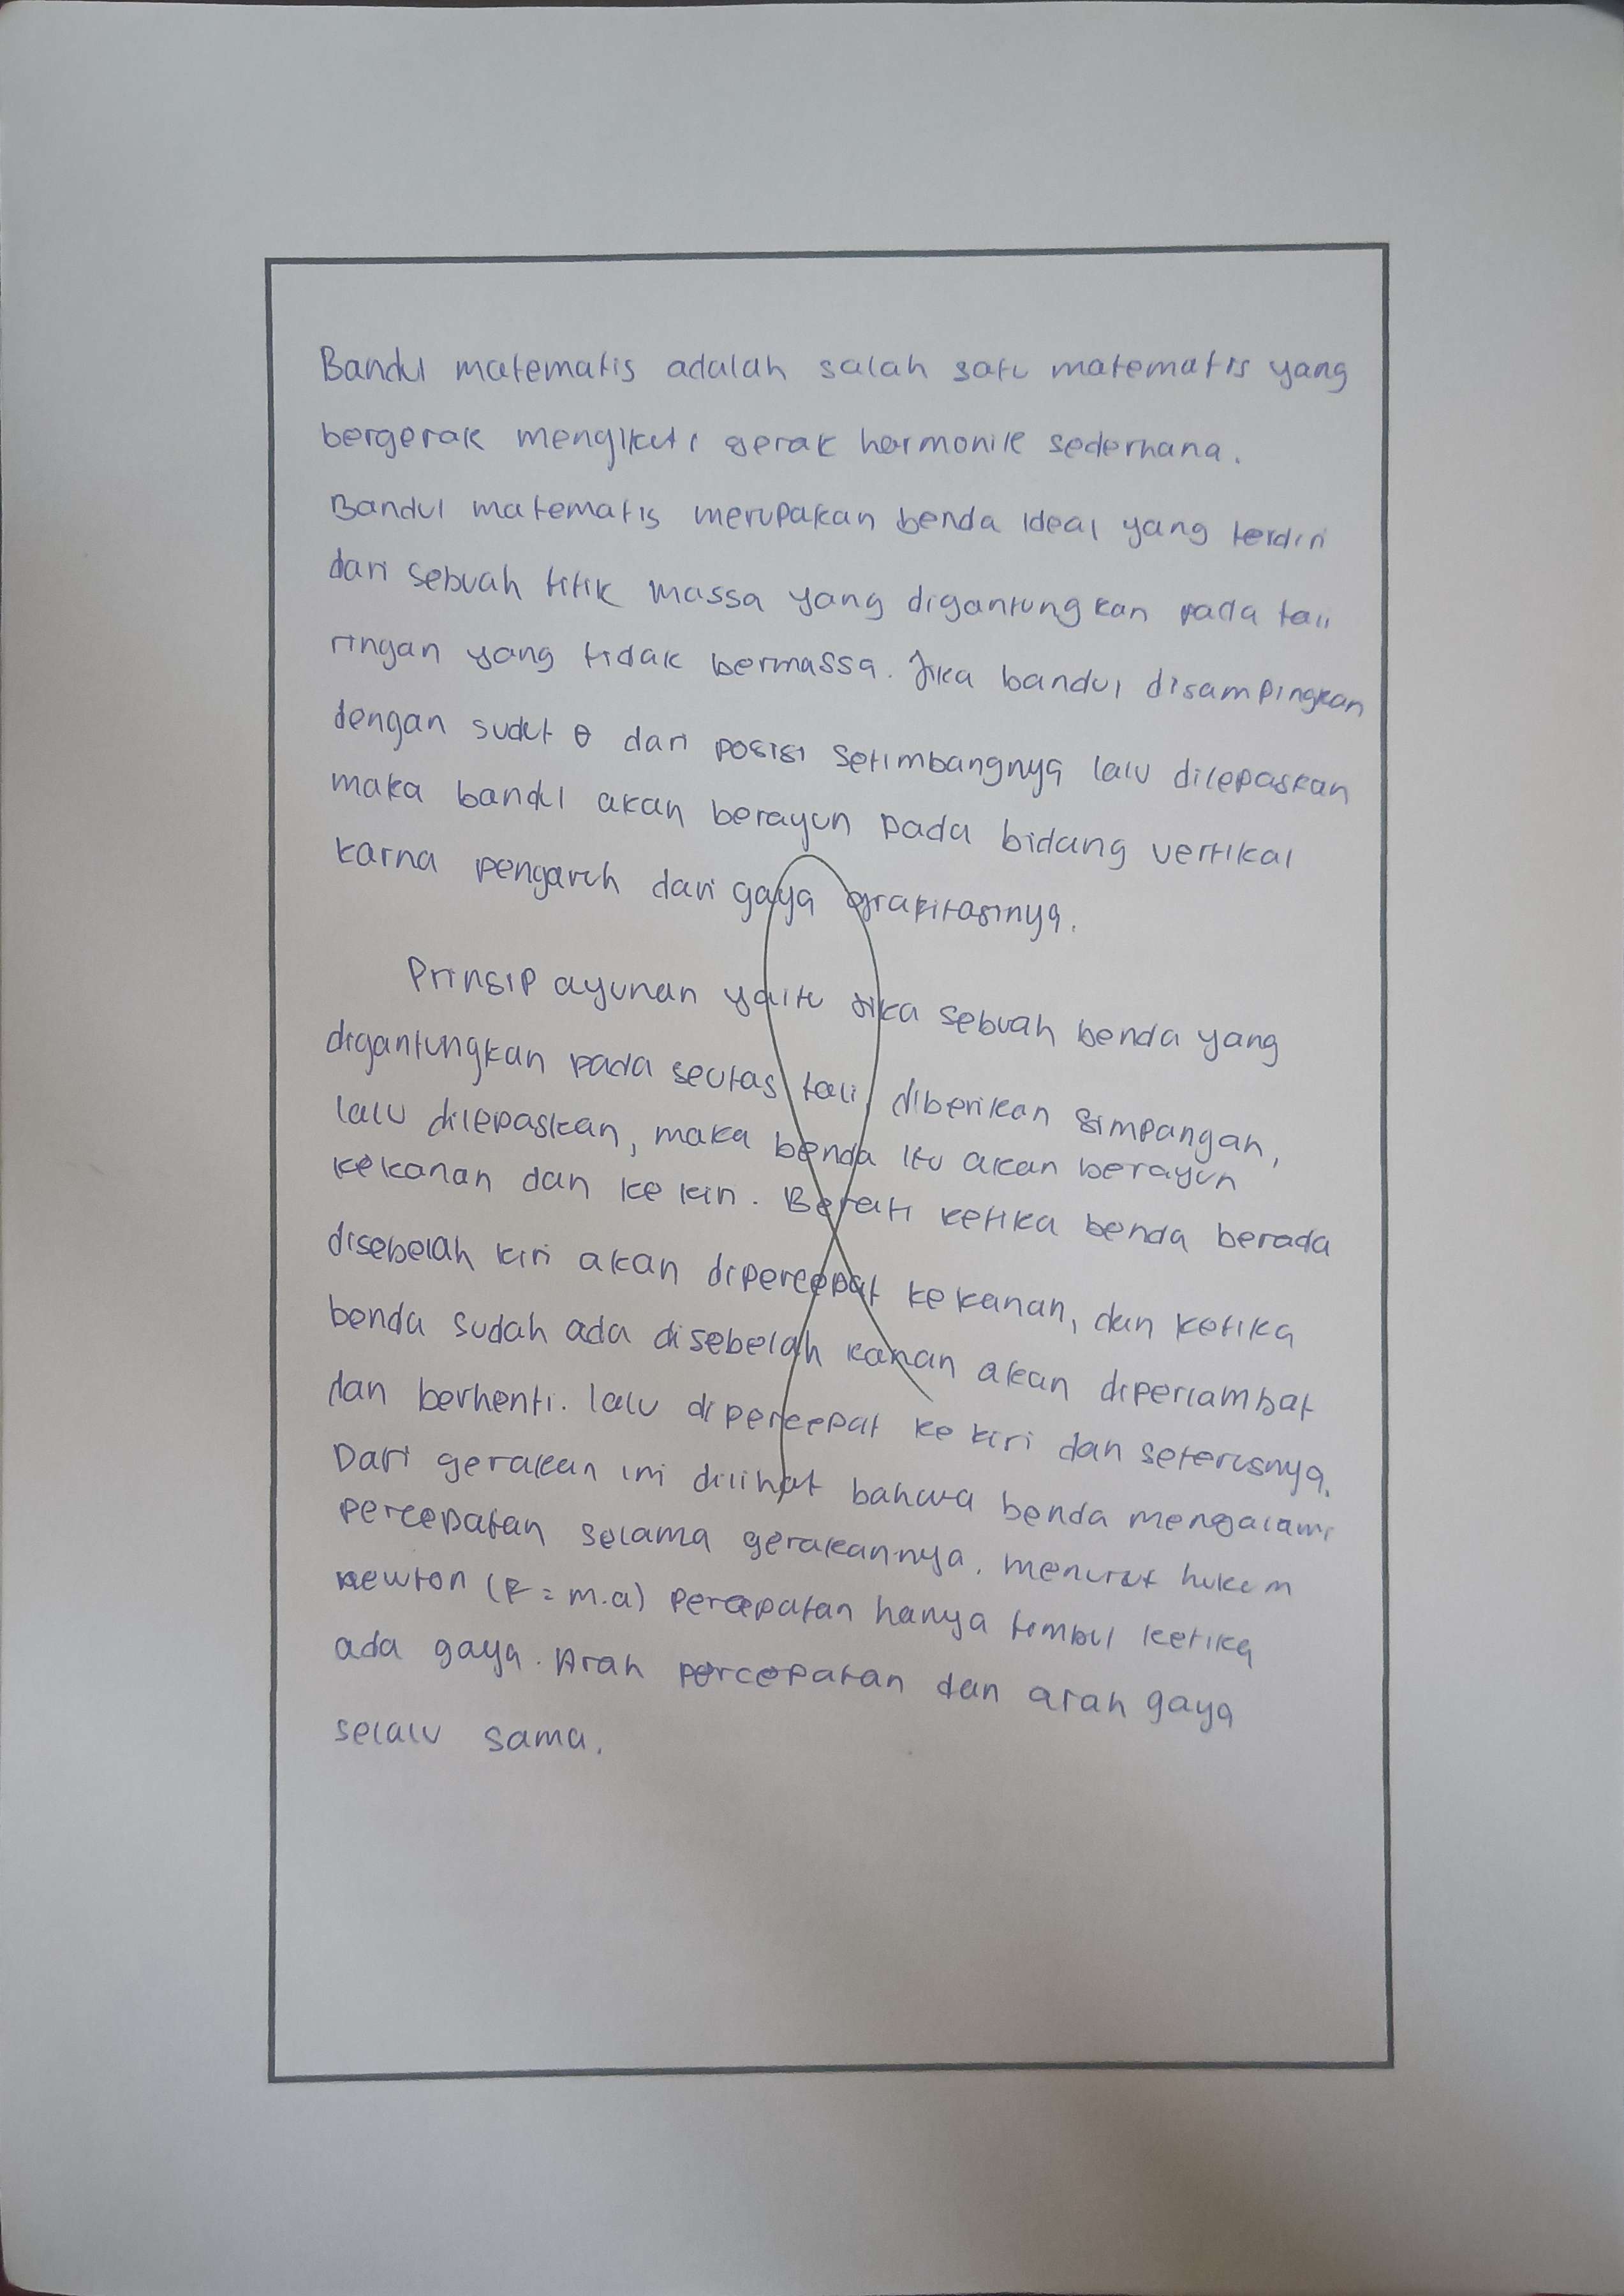 Bandul matematis adalah salah satu matematis yang
bergerak mengikuti gerak harmonik sederhana.
Bandul matematis merupakan benda ideal yang terdiri
dari sebuah titik massa yang digantungkan pada tali
ringan yang tidak bermassa. Jika bandul disampingkan
dengan sudut θ dari posisi setimbangnya lalu dilepaskan
maka bandul akan berayun pada bidang vertikal
karna pengaruh dari gaya grafitasinya.
Prinsip ayunan yaitu jika sebuah benda yang
digantungkan pada seutas tali, diberikan simpangan,
lalu dilepaskan, maka benda itu akan berayun
kekanan dan ke kiri. Berarti ketika benda berada
disebelah kiri akan dipercepat ke kanan, dan ketika
benda sudah ada disebelah kanan akan diperlambat
dan berhenti. lalu dipercepat ke kiri dan seterusnya.
Dari gerakan ini dilihat bahwa benda mengalami
percepatan selama gerakannya. menurut hukum
newton (F = m.a) percepatan hanya timbul ketika
ada gaya. Arah percepatan dan arah gaya
selalu sama.